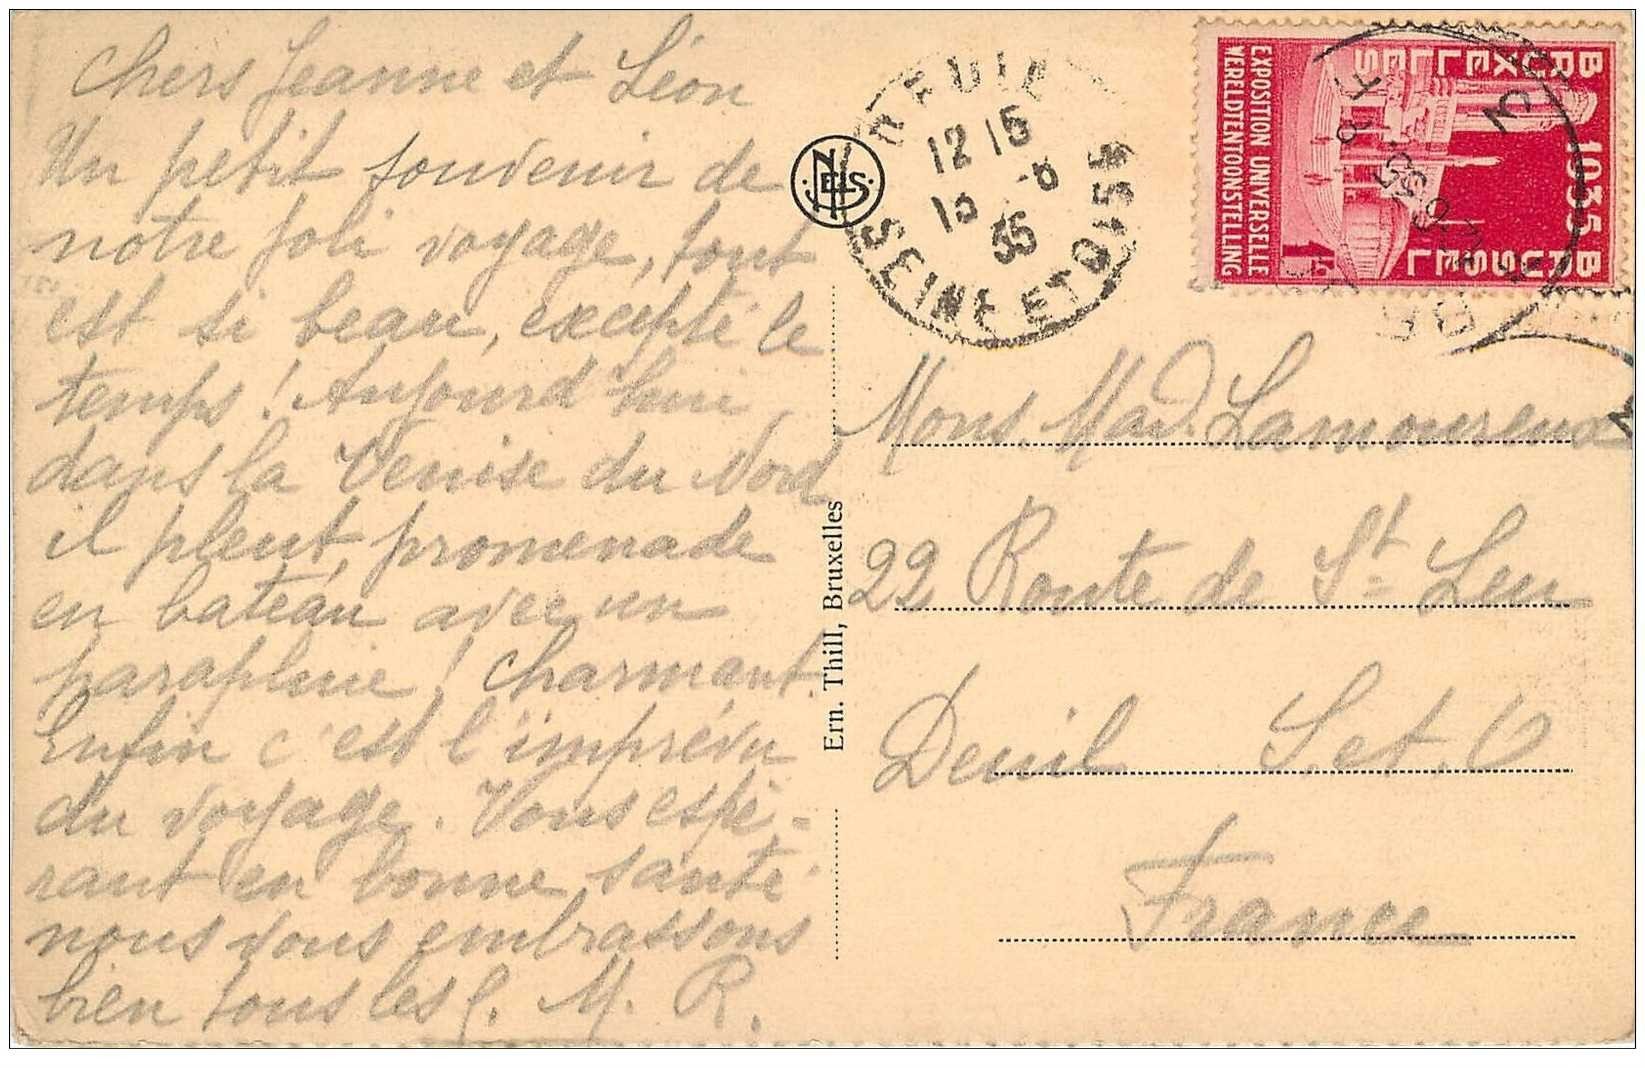 Chers Jeanne et Léon
Un petit souvenir de
notre joli voyage, tout
est si beau, excepté le
temps ! Aujourd'hui,
dans la Venise du Nord
il pleut, promenade
en bateau avec un
parapluie ! Charmant.
Enfin c'est l'imprévu
du voyage. Vous espé-
rant en bonne santé
nous vous embrassons
bien tous les M. R.
NELS
Ern. Thill, Bruxelles
DEUIL
12 15
13 -8
35
SEINE ET OISE
BRUXELLES 1935 BRUSSEL
EXPOSITION UNIVERSELLE
WERELDTENTOONSTELLING
Mons. Mad. Lamoureux
22 Route de St Leu
Deuil S. et. O
France